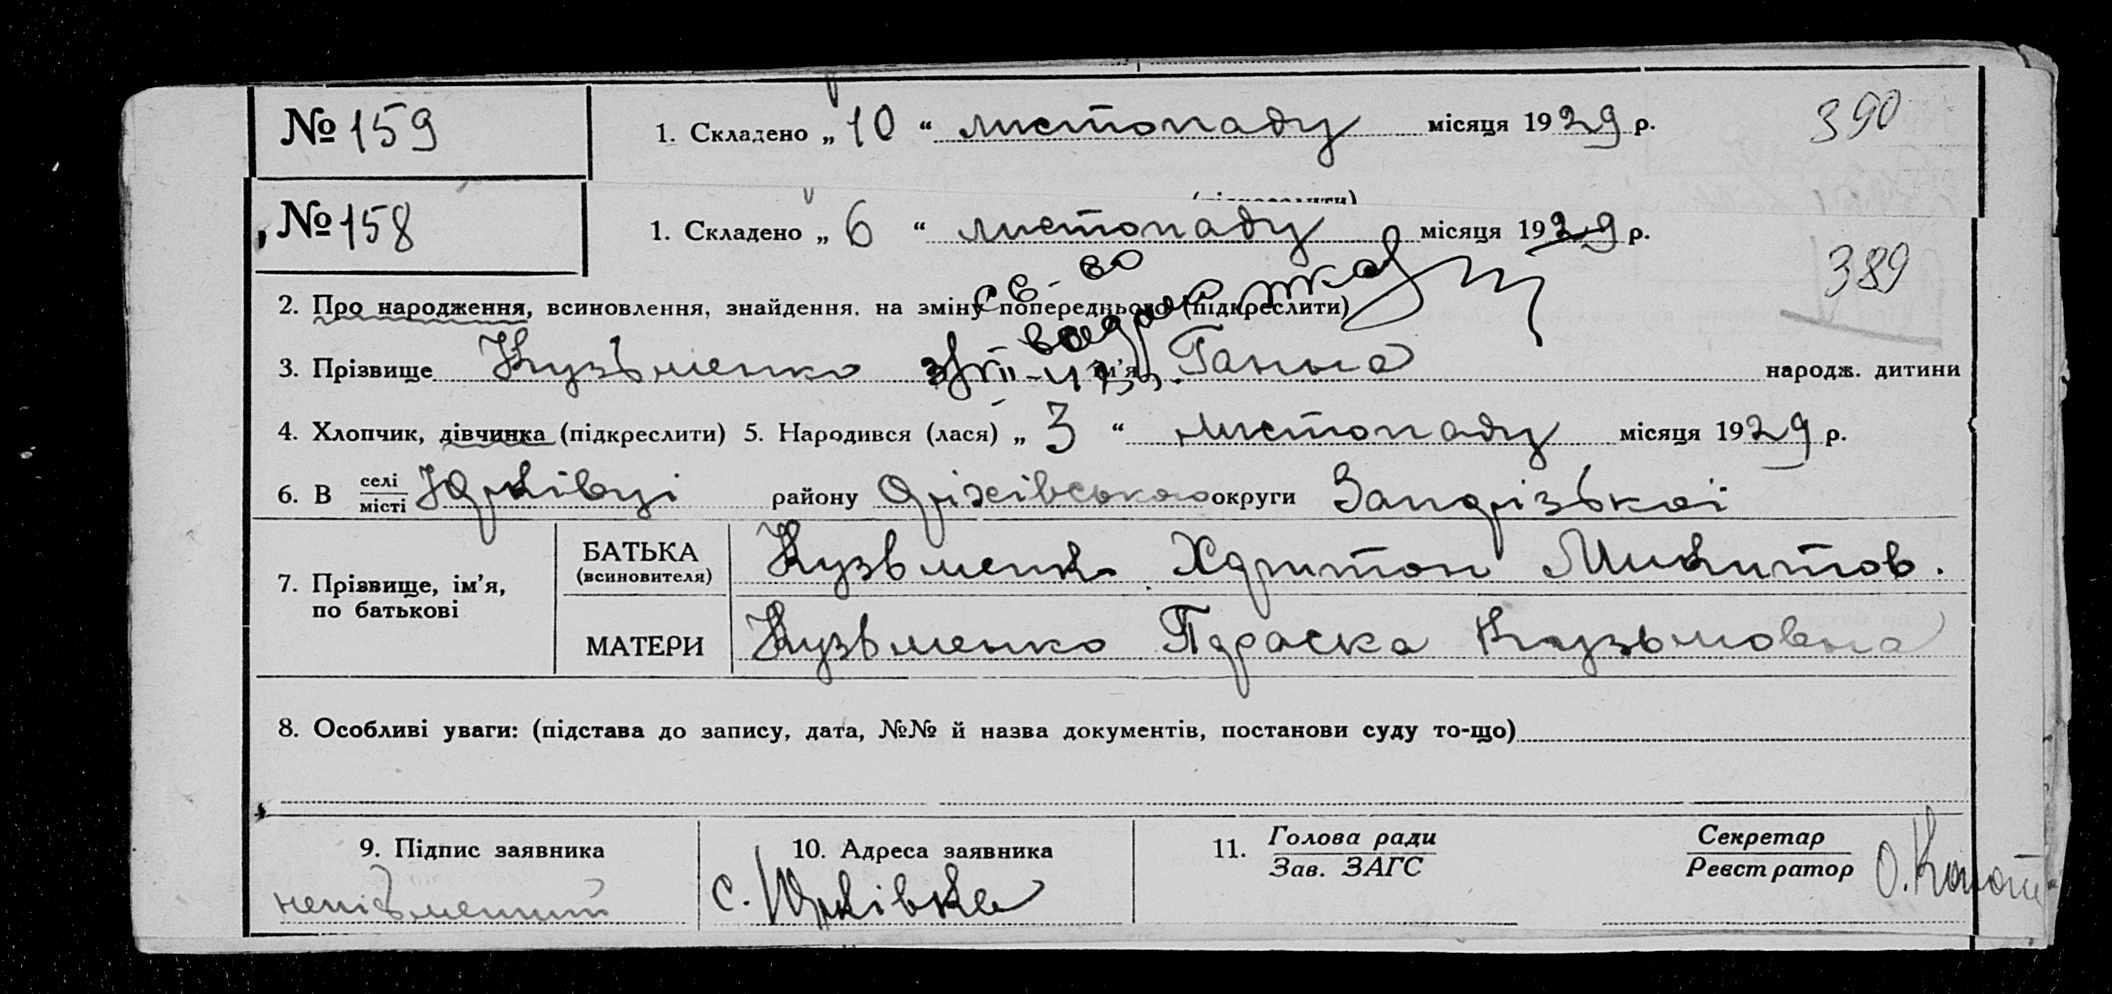 № 159 1. Складено „ 10 “ листопаду місяця 1929 р. 390
№ 158 1. Складено „ 6 “ листопаду місяця 1929 р. 389
св-во
2. Про народження, всиновлення, знайдення, на зміну попереднього (підкреслити)
3. Прізвище Кузьменко ім'я Ганна народж. дитини
4. Хлопчик, дівчинка (підкреслити) 5. Народився (лася) „ 3 “ листопаду місяця 1929 р.
6. В селі місті Юрківці району Оріхівського округи Запорізької
7. Прізвище, ім'я, по батькові
БАТЬКА (всиновителя) Кузьменко Харитон Микитов.
МАТЕРИ Кузьменко Параска Кузьмовна
8. Особливі уваги: (підстава до запису, дата, №№ й назва документів, постанови суду то-що)
9. Підпис заявника 10. Адреса заявника 11. Голова ради Зав. ЗАГС Секретар Реєстратор
неписьменний с. Юрківка